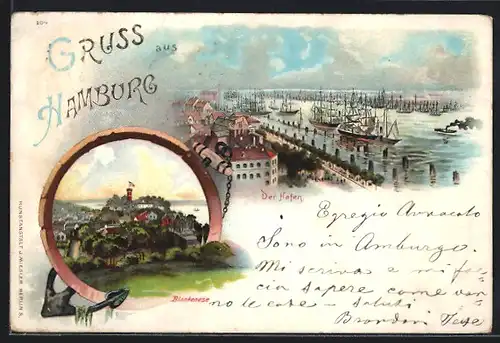 404
GRUSS aus
HAMBURG
Der Hafen.
Blankenese
KUNSTANSTALT J. MIESLER, BERLIN S.
Egregio Avvocato
Sono in Amburgo.
Mi scriva e mi fac-
cia sapere come van-
no le cose – Saluti